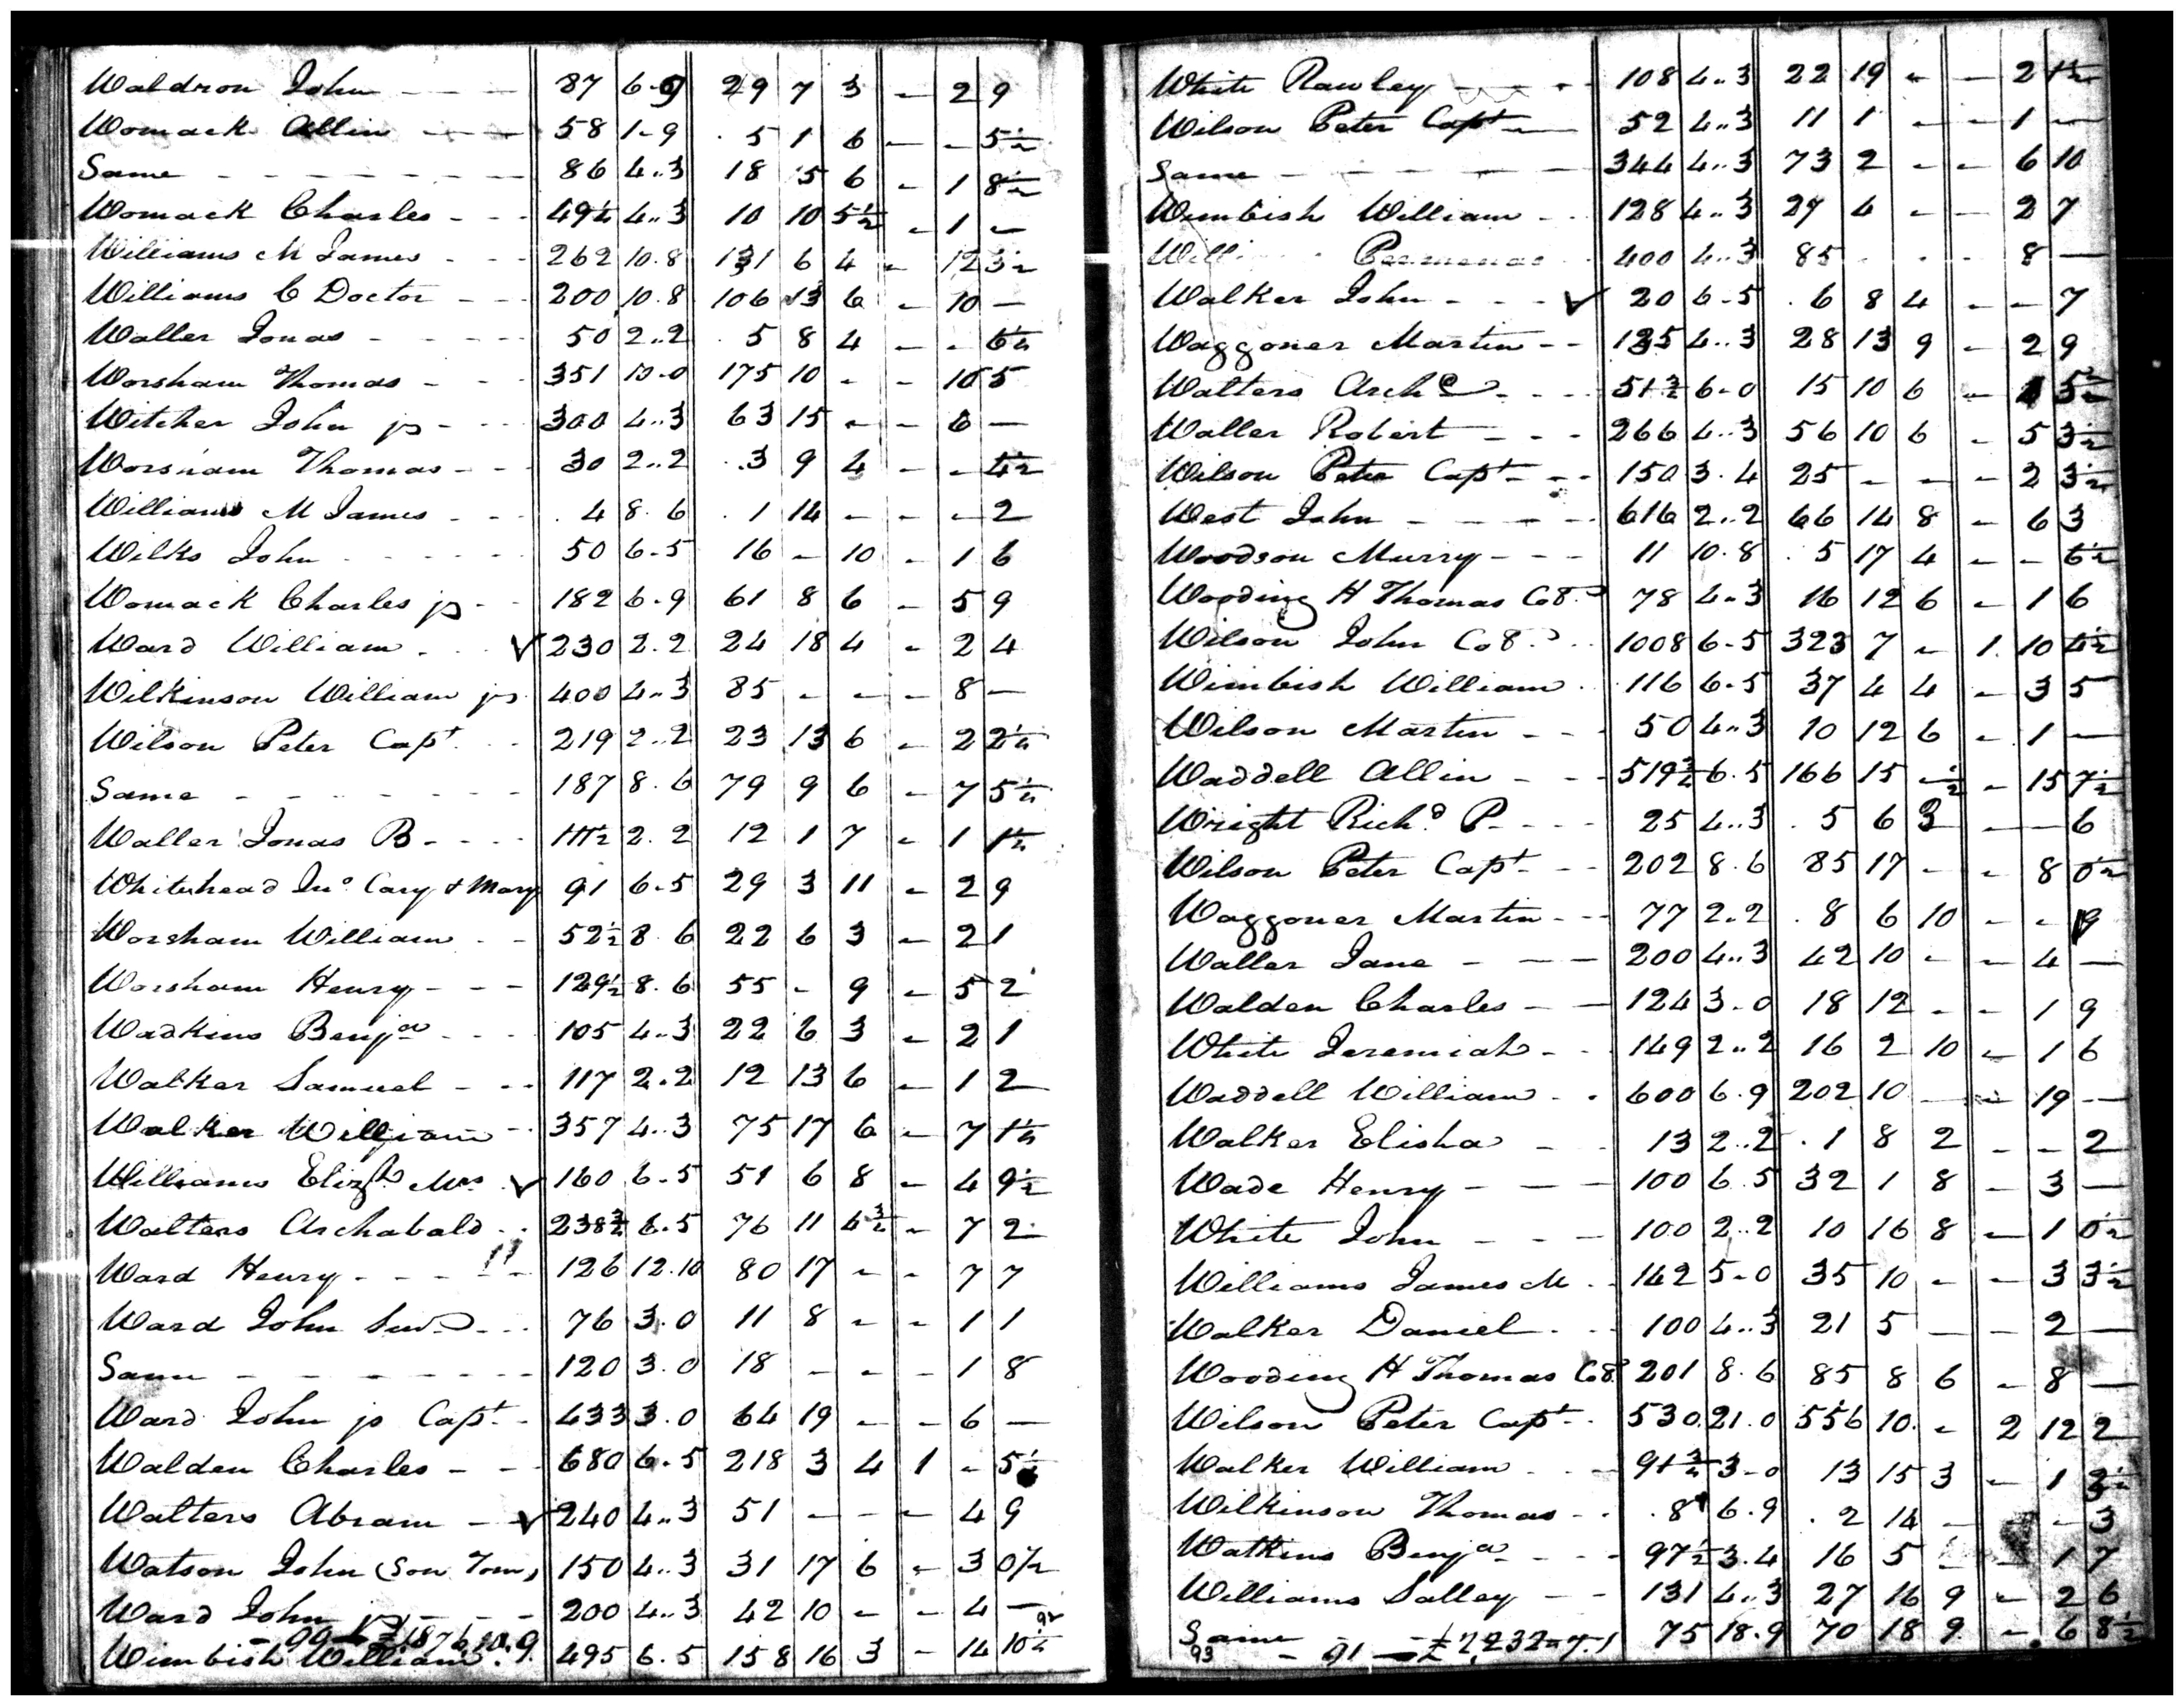 Waldron John - - - 87 6.9 29 7 3 - 2 9
Womack Allin - - - 58 1-9 5 1 6 - - 5½
Same - - - - - - - 86 4..3 18 5 6 - 1 8½
Womack Charles - - - 49½ 4..3 10 10 5½ - 1 -
Williams M James - - - 262 10.8 131 6 4 - 12 3½
Williams C Doctor - - - 200 10.8 106 13 6 - 10 -
Waller Jonas - - - - 50 2..2 5 8 4 - - 6½
Worsham Thomas - - - 351 10-0 175 10 - - 16 5
Witcher John jr - - - 300 4..3 63 15 - - 6 -
Worsham Thomas - - - 30 2..2 3 9 4 - - 4½
Williams M James - - - 4 8.6 1 14 - - - 2
Wilks John - - - - - 50 6-5 16 - 10 - 1 6
Womack Charles jr - - 182 6.9 61 8 6 - 5 9
Ward William - - ✓ 230 2.2 24 18 4 - 2 4
Wilkinson William jr 400 4..3 85 - - - 8 -
Wilson Peter Capt - - - 219 2..2 23 13 6 - 2 2½
Same - - - - - - - 187 8.6 79 9 6 - 7 5½
Waller Jonas B - - - - 111½ 2.2 12 1 7 - 1 1½
Whitehead Jno Cary & Mary 91 6-5 29 3 11 - 2 9
Worsham William - - 52½ 8.6 22 6 3 - 2 1
Worsham Henry - - - 129½ 8.6 55 - 9 - 5 2
Wadkins Benja - - - 105 4..3 22 6 3 - 2 1
Walker Samuel - - - 117 2.2 12 13 6 - 1 2
Walker William - 357 4..3 75 17 6 - 7 1½
Williams Elizth Mrs ✓ 160 6-5 51 6 8 - 4 9½
Walters Archabald - - 238¾ 6.5 76 11 4¾ - 7 2
Ward Henry - - - - - 126 12.10 80 17 - - 7 7
Ward John - - - 76 3.0 11 8 - - 1 1
Same - - - - - - - 120 3.0 18 - - - 1 8
Ward John jr Capt - 433 3.0 64 19 - - 6 -
Walden Charles - - 680 6.5 218 3 4 1 - 5½
Walters Abram - ✓ 240 4..3 51 - - - 4 9
Watson John (Son Tom) 150 4..3 31 17 6 - 3 0½
Ward John jr - - - 200 4..3 42 10 - - 4 -
Wimbish William 495 6.5 158 16 3 - 14 10½
White Rawley - - - - 108 4..3 22 19 - - 2 1½
Wilson Peter Capt - 52 4..3 11 1 - - 1 -
Same - - - - - 344 4..3 73 2 - - 6 10
Wimbish William - - 128 4..3 27 4 - - 2 7
400 4..3 85 - - - 8 -
Walker John - - - ✓ 20 6-5 6 8 4 - - 7
Waggoner Martin - - 135 4..3 28 13 9 - 2 9
Walters Archd - - - 51¾ 6-0 15 10 6 - 1 5½
Waller Robert - - - 266 4..3 56 10 6 - 5 3½
Wilson Peter Capt - - - 150 3.4 25 - - - 2 3½
West John - - - - - 616 2..2 66 14 8 - 6 3
Woodson Murry - - - 11 10.8 5 17 4 - - 6½
Wooding H Thomas Col 78 4..3 16 12 6 - 1 6
Wilson John Col - - 1008 6-5 323 7 - 1 10 4½
Wimbish William - 116 6-5 37 4 4 - 3 5
Wilson Martin - - 50 4..3 10 12 6 - 1 -
Waddell Allin - - - 519¾ 6.5 166 15 -½ - 15 7½
Wright Richd P - - - - 25 4..3 5 6 3 - - 6
Wilson Peter Capt - - - 202 8.6 85 17 - - 8 0½
Waggoner Martin - - - 77 2..2 8 6 10 - - 9
Waller Jane - - - 200 4..3 42 10 - - 4 -
Walden Charles - - 124 3-0 18 12 - - 1 9
White Jeremiah - - 149 2..2 16 2 10 - 1 6
Waddell William - - 600 6.9 202 10 - - 19 -
Walker Elisha - - 13 2..2 1 8 2 - - 2
Wade Henry - - - 100 6.5 32 1 8 - 3 -
White John - - - 100 2..2 10 16 8 - 1 0½
Williams James M - - 142 5-0 35 10 - - 3 3½
Walker Daniel - - 100 4..3 21 5 - - 2 -
Wooding H Thomas Col 201 8.6 85 8 6 - 8 -
Wilson Peter Capt - - 530 21.0 556 10 - 2 12 2
Walker William - - - 91¾ 3-0 13 15 3 - 1 3½
Wilkinson Thomas - - 8 6.9 2 14 - - - 3
Watkins Benja - - - 97½ 3.4 16 5 - - 1 7
Williams Salley - - 131 4..3 27 16 9 - 2 6
Same - 75 18.9 70 18 9 - 6 8½
93 - 91 - £2,232-7-1